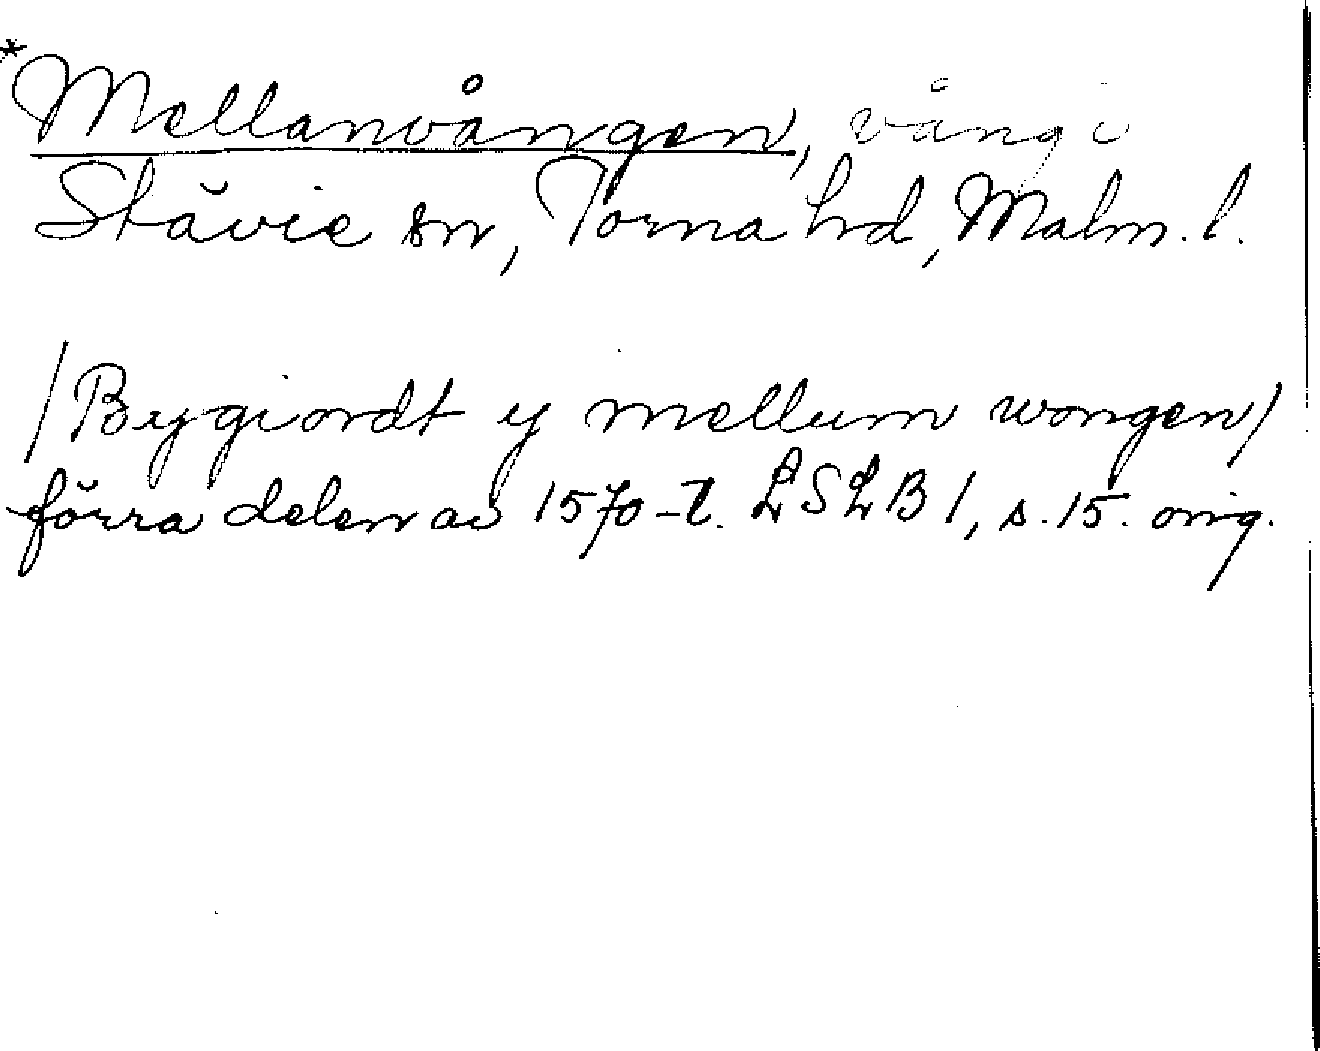 *Mellanvången, vång i
Stävie sn, Torna hd, Malm. l.
/Bygiordt y mellum wongen/
förra delen av 1570-t. LSLB 1, s. 15. orig.